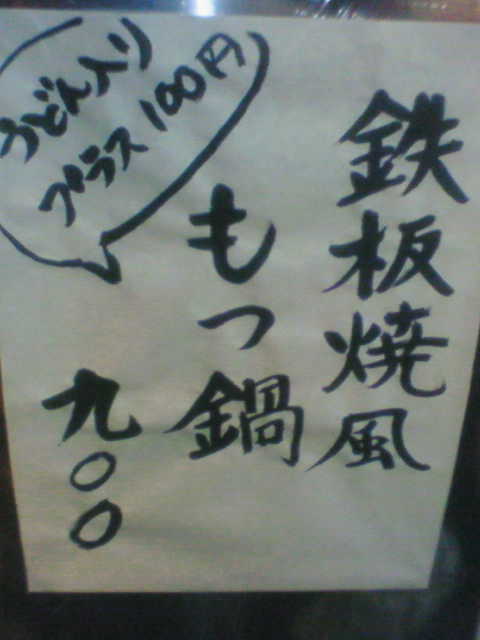 鉄板焼風
もつ鍋
九〇〇
うどん入り
プラス100円